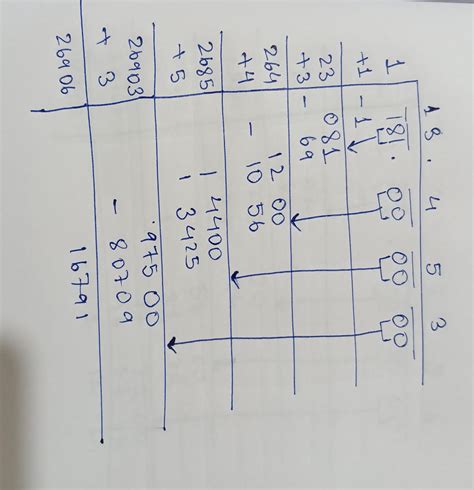 13. 4 5 3
1 181. 00 00 00
+1 - 1
23 081
+3 - 69
264 12 00
+4 - 10 56
2685 1 4400
+5 1 3425
26903 97500
+ 3 - 80709
26906 16791